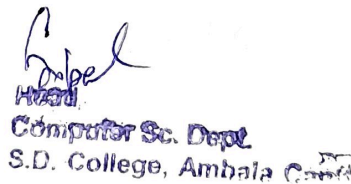 Head
Computer Sc. Dept.
S.D. College, Ambala Cantt